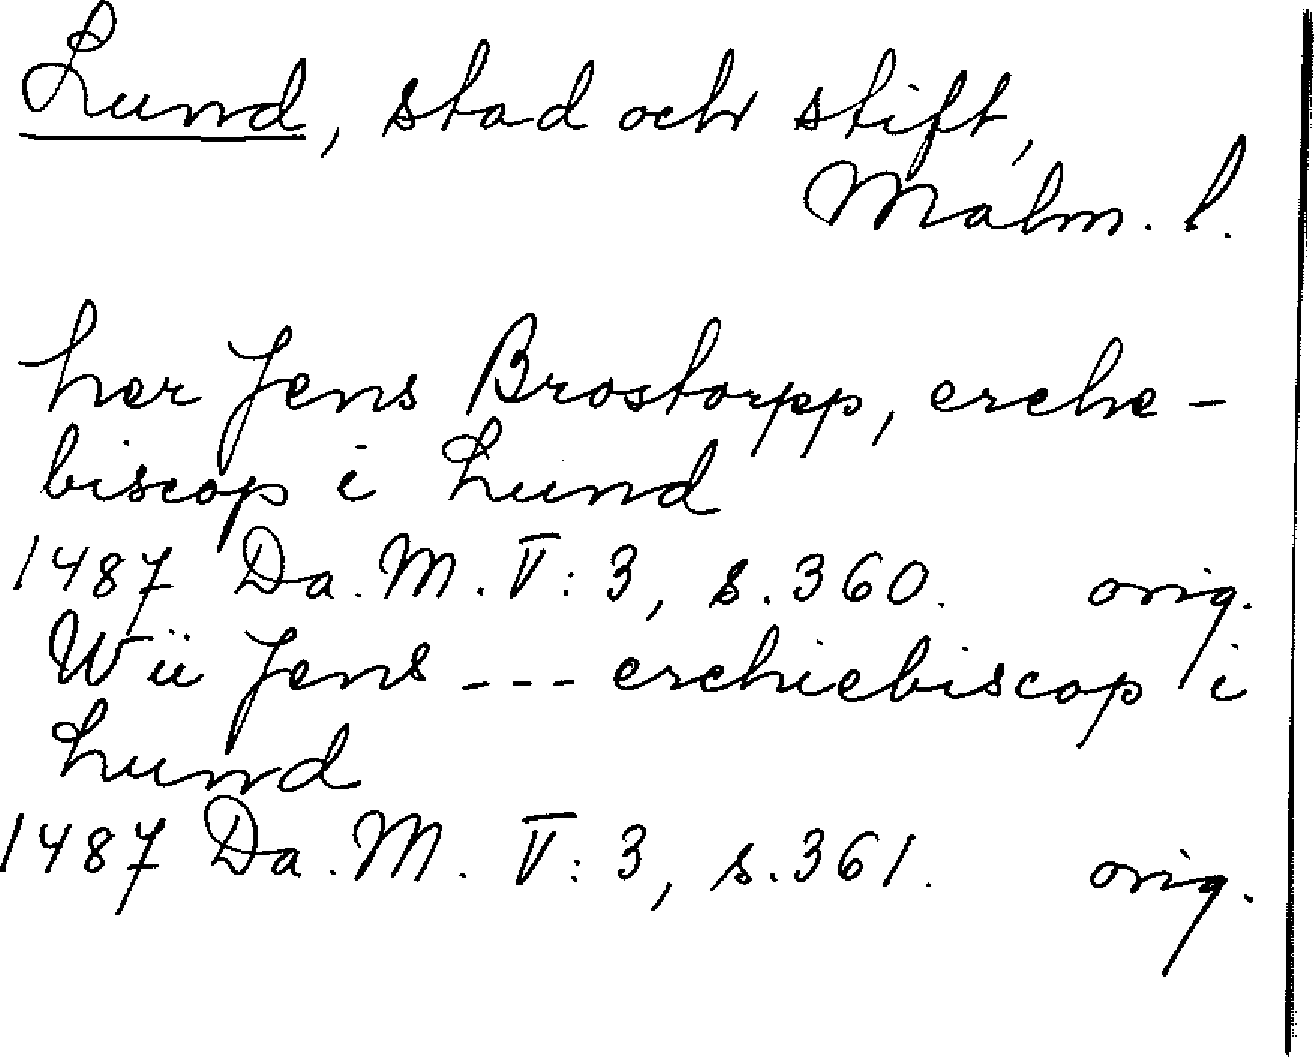 Lund, stad och stift,
Malm. l.
her Jens Brostorpp, erche-
biscop i Lund
1487 Da. M. V: 3, s. 360. orig.
Wii Jens --- erchiebiscop i
Lund
1487 Da. M. V: 3, s. 361. orig.